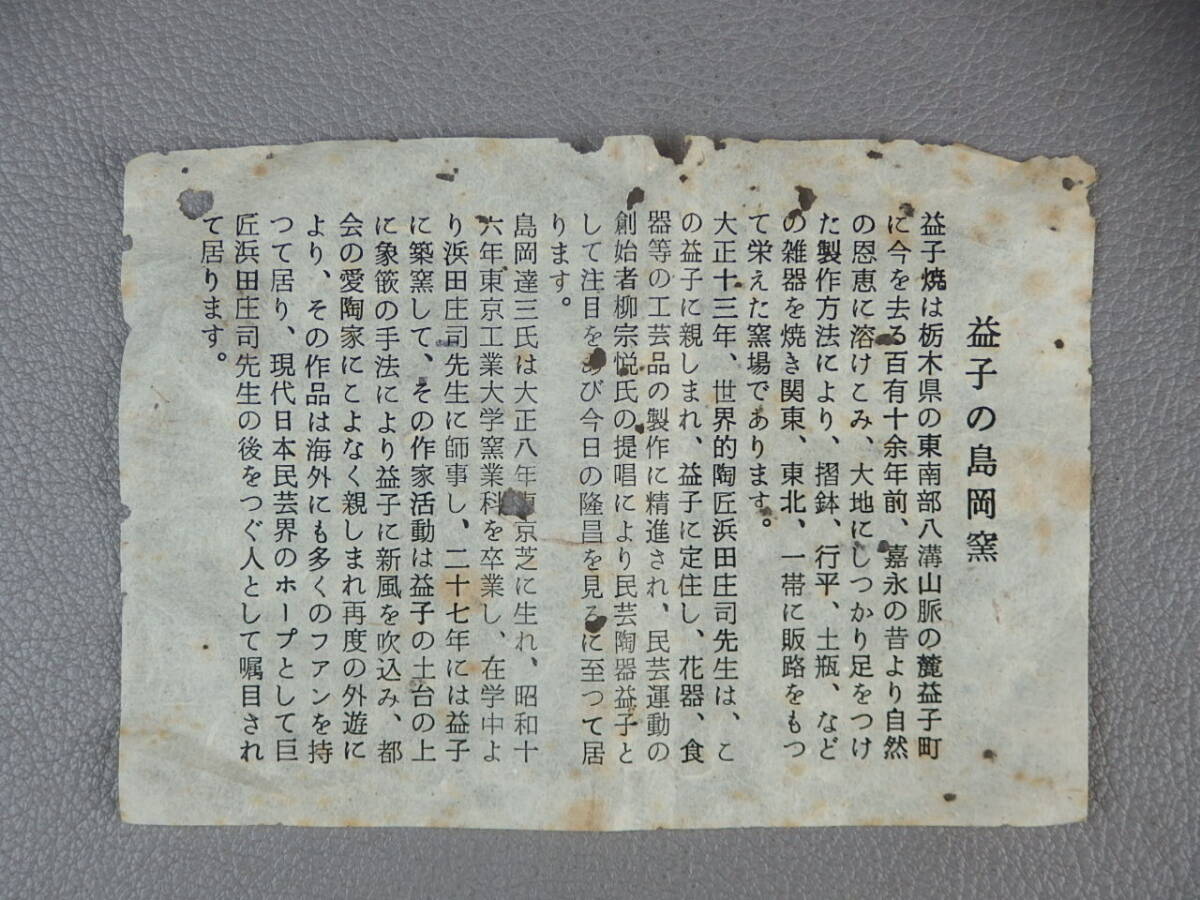 益子の島岡窯
益子焼は栃木県の東南部八溝山脈の麓益子町
に今を去る百有十余年前、嘉永の昔より自然
の恩恵に溶けこみ、大地にしつかり足をつけ
た製作方法により、摺鉢、行平、土瓶、など
の雑器を焼き関東、東北、一帯に販路をもつ
て栄えた窯場であります。
大正十三年、世界的陶匠浜田庄司先生は、こ
の益子に親しまれ、益子に定住し、花器、食
器等の工芸品の製作に精進され、民芸運動の
創始者柳宗悦氏の提唱により民芸陶器益子と
して注目をあび今日の隆昌を見るに至つて居
ります。
島岡達三氏は大正八年東京芝に生れ、昭和十
六年東京工業大学窯業科を卒業し、在学中よ
り浜田庄司先生に師事し、二十七年には益子
に築窯して、その作家活動は益子の土台の上
に象篏の手法により益子に新風を吹込み、都
会の愛陶家にこよなく親しまれ再度の外遊に
より、その作品は海外にも多くのファンを持
つて居り、現代日本民芸界のホープとして巨
匠浜田庄司先生の後をつぐ人として嘱目され
て居ります。